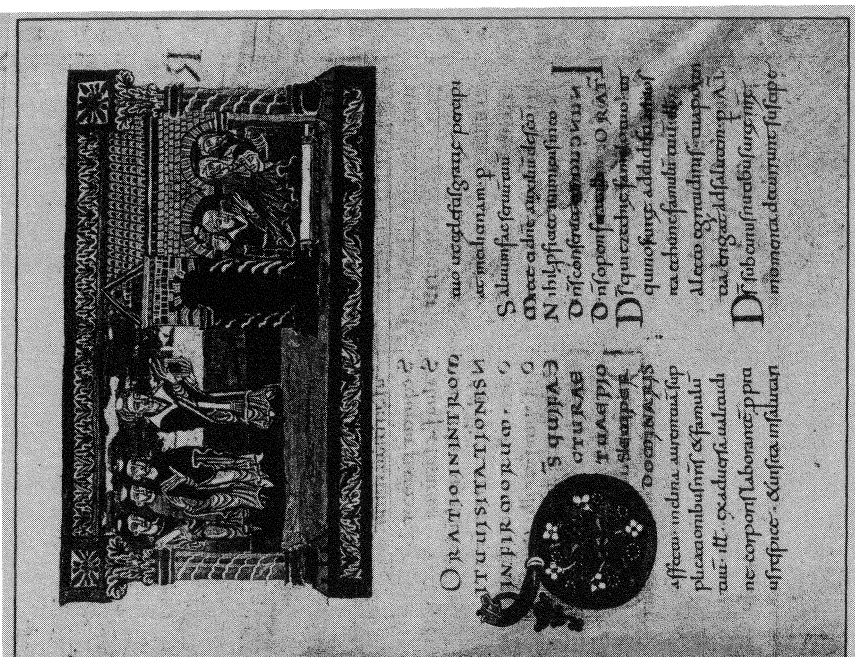 ORATIO IN INTRO
ITU UISITATIONIS
INFIRMORUM.
S̄ QUI FA
CTURAE
TUAE PIO
SEMPER
DOMINARIS
affectu. inclina aurem tuā sup
plicationibus nr̄is & famulū
tuū. ilł. ex aduersa ualitudi
ne corporis laborantē
us respice. & uisita in salutari
tuo ut caelestis gratiae percipi
at medicinam. p
Saluum fac seruum tuū
Mitte ei dn̄e auxiliū de sc̄o
Nihil pficiat inimicus in eo
Dn̄s conseruet
Dn̄s opem ferat ORAT
Ds̄ qui ezechiae famulo tuo
quinos annos ad uitā
ita & hunc famulū tuū
a lecto egritudinis tua potentia
erigat ad salutem. p. AL
Ds̄ sub cuius nutibus uitae nr̄e
momenta decurrunt suscipe